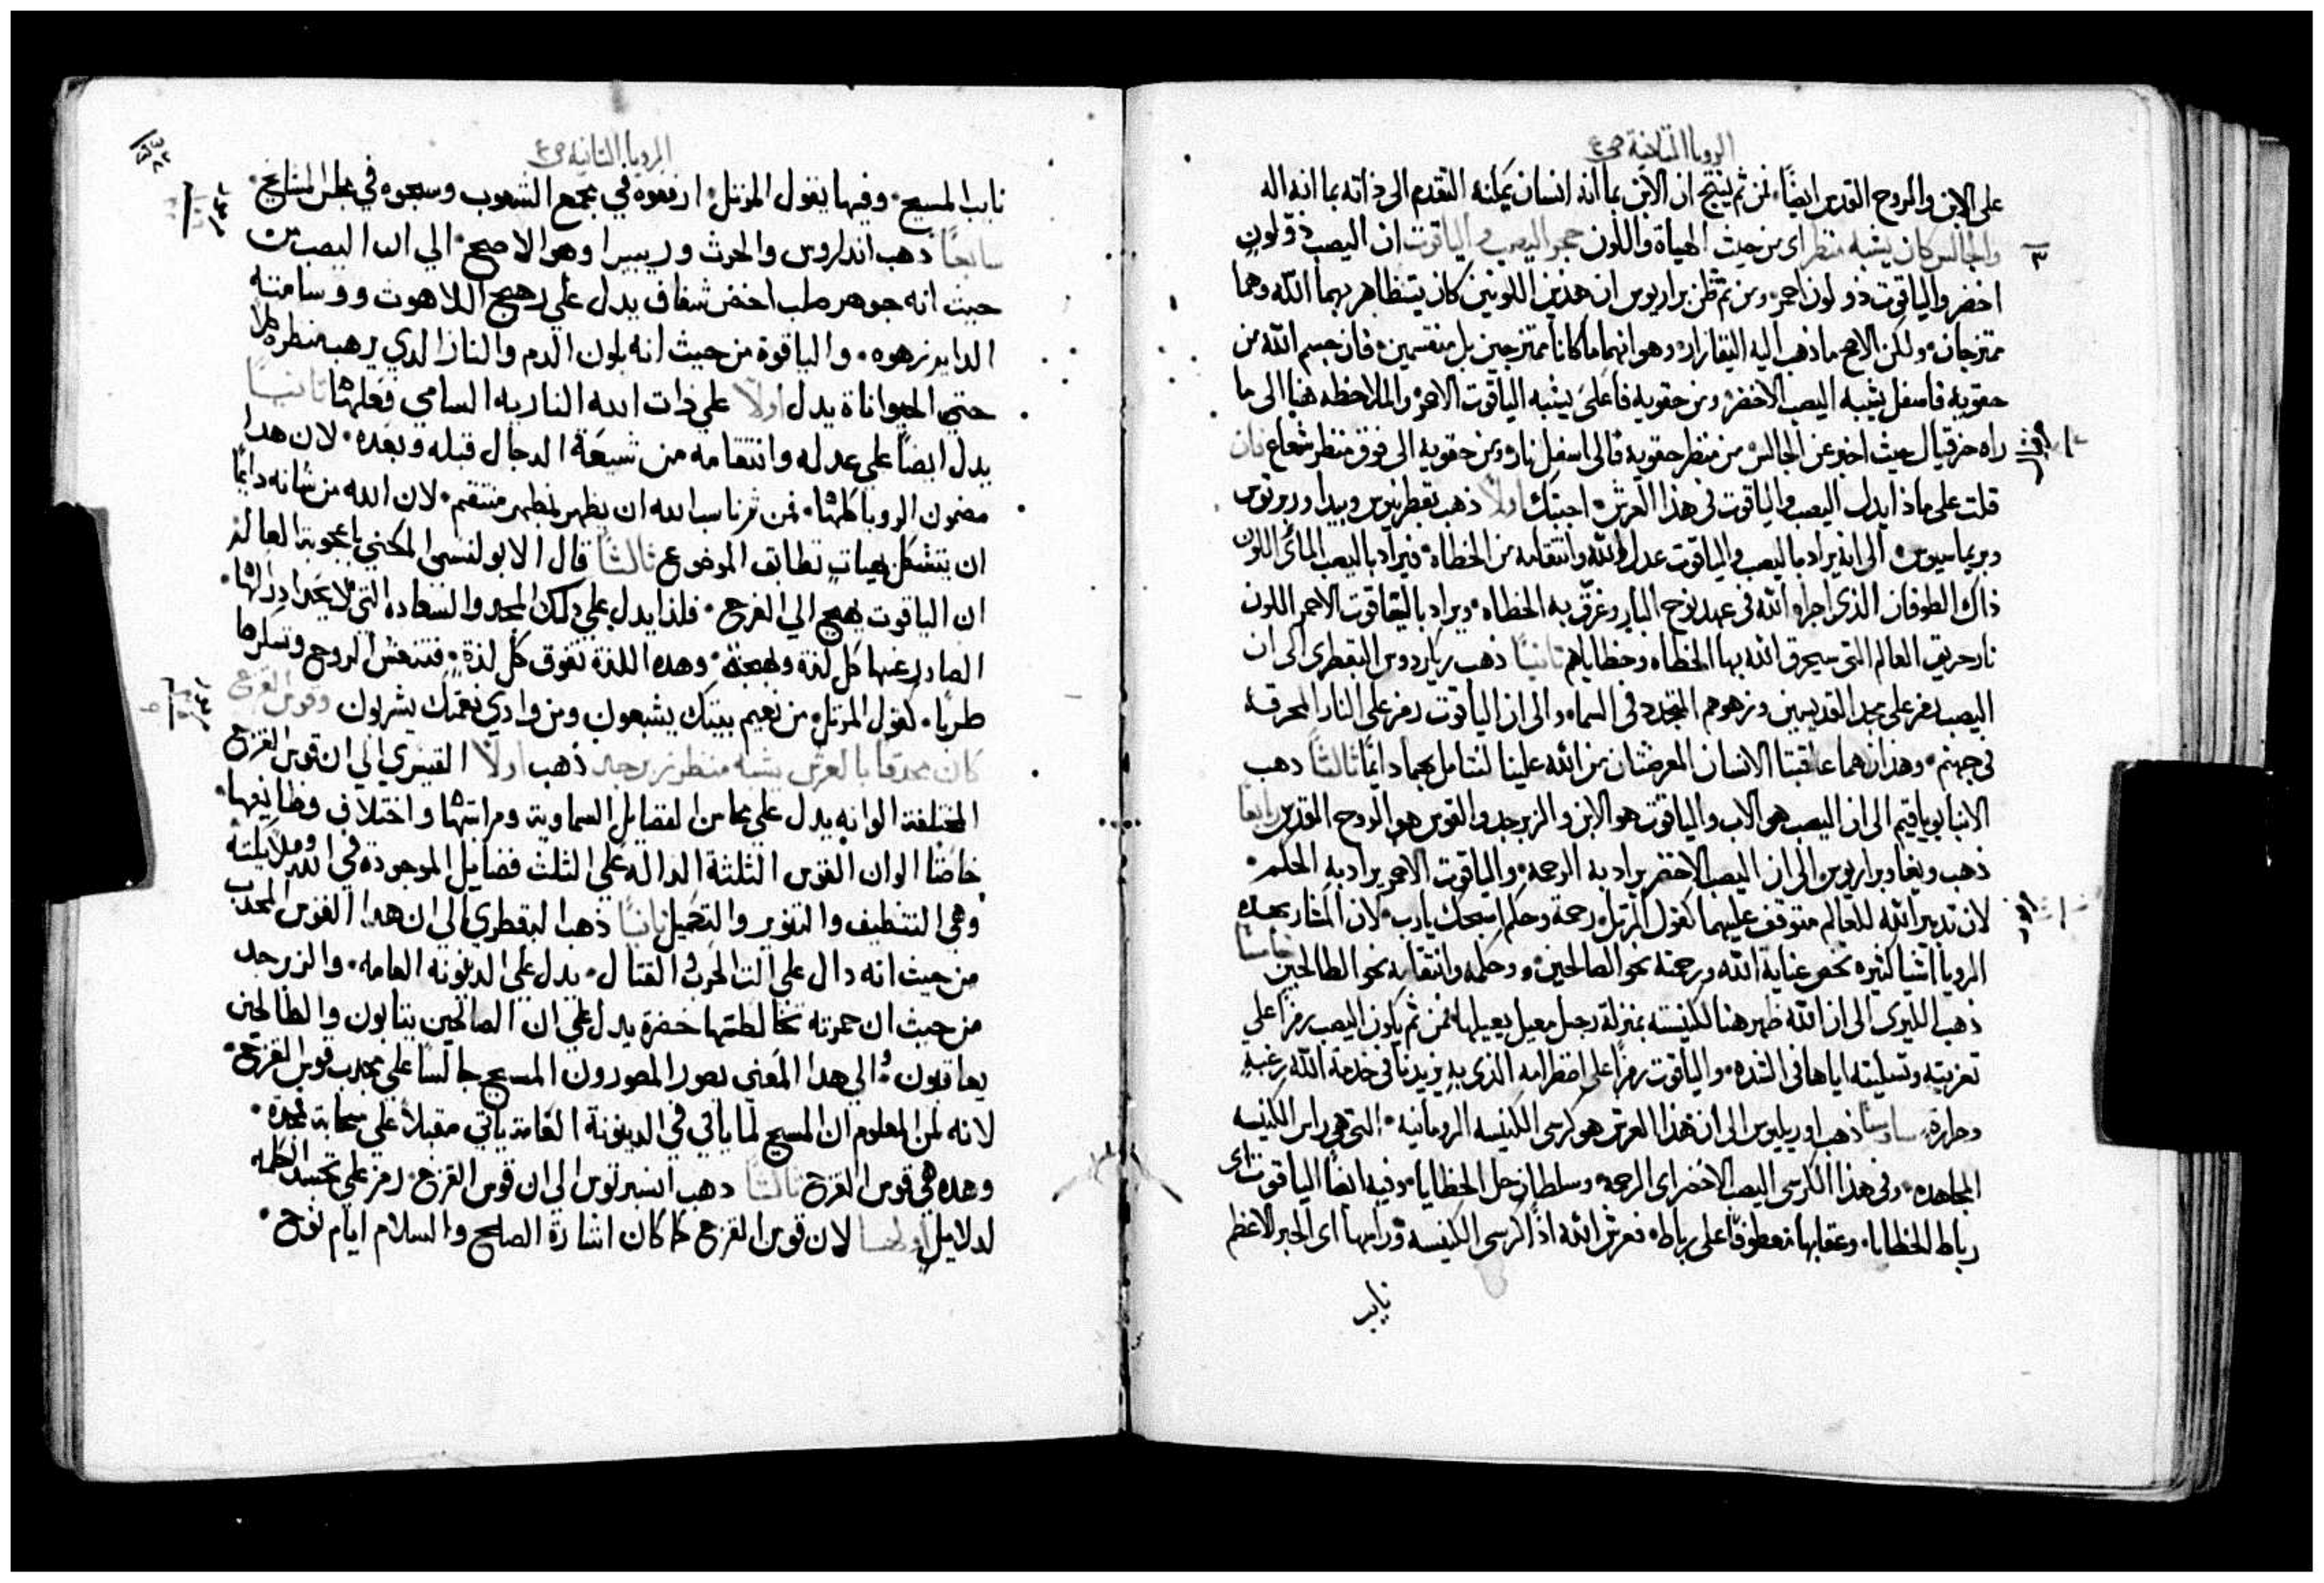 الرويا الثانية ص ع
على الابن والروح القدس ايضًا. فمن ثم ينتج ان الابن بما انه انسان يمكنه التقدم الى ذاته بما انه اله
والجالس كان يشبه منظر اى من حيث الهياة واللون حجر اليصب والياقوت ان اليصب ذو لون
اخضر والياقوت ذو لون احمر. ومن ثم ظن براريوس ان هذين اللونين كان يتظاهر بهما الله وهما
ممتزجان. ولكن الاصح ما ذهب اليه وهو انهما ما كانا ممتزجين بل منقسمين. فان جسم الله من
حقويه فاسفل يشبه اليصب الاخضر ومن حقويه فاعلى يشبه الياقوت الاحمر والملاحظه هنا الى ما
راه حزقيال حيث اخبر عن الجالس من منظر حقويه فالى اسفل نار ومن حقويه الى فوق منظر شعاع فان
قلت على ماذا يدل اليصب والياقوت فى هذا العرش اجبتك اولًا ذهب بقطرنيوس وبيدا وربرتوس
وبريماسيوس. الى انه يراد باليصب والياقوت عدل الله وانتقامه من الخطاه. فيراد باليصب المائى اللون
ذاك الطوفان الذى اجراه الله فى عهد نوح البار وغرق به الخطاه. ويراد بالياقوت الاحمر اللون
نار حريق العالم التى سيحرق الله بها الخطاه وخطاياهم ثانيًا ذهب ريكاردوس البقطرى الى ان
اليصب رمز على مجد القديسين وزهوهم المتجدد فى السماء والى ان الياقوت رمز على النار المحرقه
فى جهنم. وهذان هما عاقبتا الانسان المعرضتان من الله علينا لنتامل بهما دايمًا ثالثًا ذهب
الانبا يوياقيم الى ان اليصب هو الاب والياقوت هو الابن والزبرجد والقوس هو الروح القدس رابعًا
ذهب ويغا وبراريوس الى ان اليصب الاخضر يراد به الرحمه. والياقوت الاحمر يراد به الحكم.
لان تدبير الله للعالم متوقف عليهما كقول المرتل. رحمة وحكم اسبحك يارب. لان المشار بهذه
الرويا اشيا كثيره تخص عناية الله ورحمته نحو الصالحين. وحكمه وانتقامه نحو الطالحين خامسًا
ذهب الليرى الى ان الله ظهر هنا لكنيسته بمنزلة رجل معيل يعيلها. فمن ثم يكون اليصب رمزًا على
تعزيته وتسليته اياها فى الشده. والياقوت رمزًا على اضطرامه الذى به يزيدنا فى خدمة الله رغبة
وحرارة. سادسًا ذهب اوريليوس الى ان هذا العرش هو كرسى الكنيسه الرومانيه. التى هى راس الكنيسه
المجاهده. وفى هذا الكرسى اليصب الاخضر اى الرحمه وسلطان حل الخطايا. وفيه ايضًا الياقوت اى
رباط الخطايا. وعقابها معطوفًا على رباط. فعرش الله اذًا كرسى الكنيسه وراسها اى الحبر الاعظم
نايب
الرويا الثانية ص ع
نايب المسيح. وفيها يقول المرتل. ارفعوه في مجمع الشعوب وسبحوه في مجلس المشايخ.
سابعًا ذهب اندراوس والحرث وريبيرا وهو الاصح. الي ان اليصب من
حيث انه جوهر صلب اخضر شفاف يدل علي بهيج اللاهوت ووسامته
الدايم زهوه. والياقوة من حيث انه بلون الدم والنار الدي يرهب منظره
حتي الحيوانات يدل اولًا علي ذات الله الناريه السامي فعلها ثانيًا
يدل ايضًا علي عدله وانتقامه من شيعة الدجال قبله وبعده. لان هدا
مضمون الرويا كلها. فمن ثم ناسب الله ان يظهر بمظهر منتقم. لان الله من شانه دايمًا
ان يتشكل بهيات تطابق الموضوع ثالثًا قال الابولنسي المكني باعجوبة العالم
ان الياقوت يهيج الي الفرح. فلذا يدل علي ذلك المجد والسعاده التي لا يحد ادراكها.
الصادر عنها كل لذة وبهجة. وهده اللذة تفوق كل لذة. فتنعش الروح وتسكرها
طربًا. كقول المرتل. من نعيم بيتك يشبعون ومن وادي نعمتك يشربون وقوس القزح
كان محدقا بالعرش يشبه منظر زبرجد ذهب اولًا القيسري الي ان قوس القزح
المختلفة الوانه يدل علي محاسن الفضايل السماوية ومراتبها واختلاف وظايفها.
خاصًا الوان القوس الثلثة الداله علي الثلث فضايل الموجودة في الله وملايكته
وهي التنظيف والتنوير والتكميل ثانيًا ذهب البقطري الي ان هدا القوس المحدب
من حيث انه دال علي الت الحرب القتال. يدل علي الدينونه العامه. والزبرجد
من حيث ان حمرته تخالطها خضرة يدل علي ان الصالحين يثابون والطالحين
يعاقبون. والي هدا المعني يصور المصورون المسيح جالسًا علي محدب قوس القزح.
لانه لمن المعلوم ان المسيح لما ياتي في الدينونة العامة ياتي مقبلًا علي سحابة مجده.
وهده هي قوس القزح ثالثًا دهب انسبرتوس الي ان قوس القزح. رمز علي تجسد الكلمه
لدلايل اولها لان قوس القزح كما كان اشارة الصلح والسلام ايام نوح.